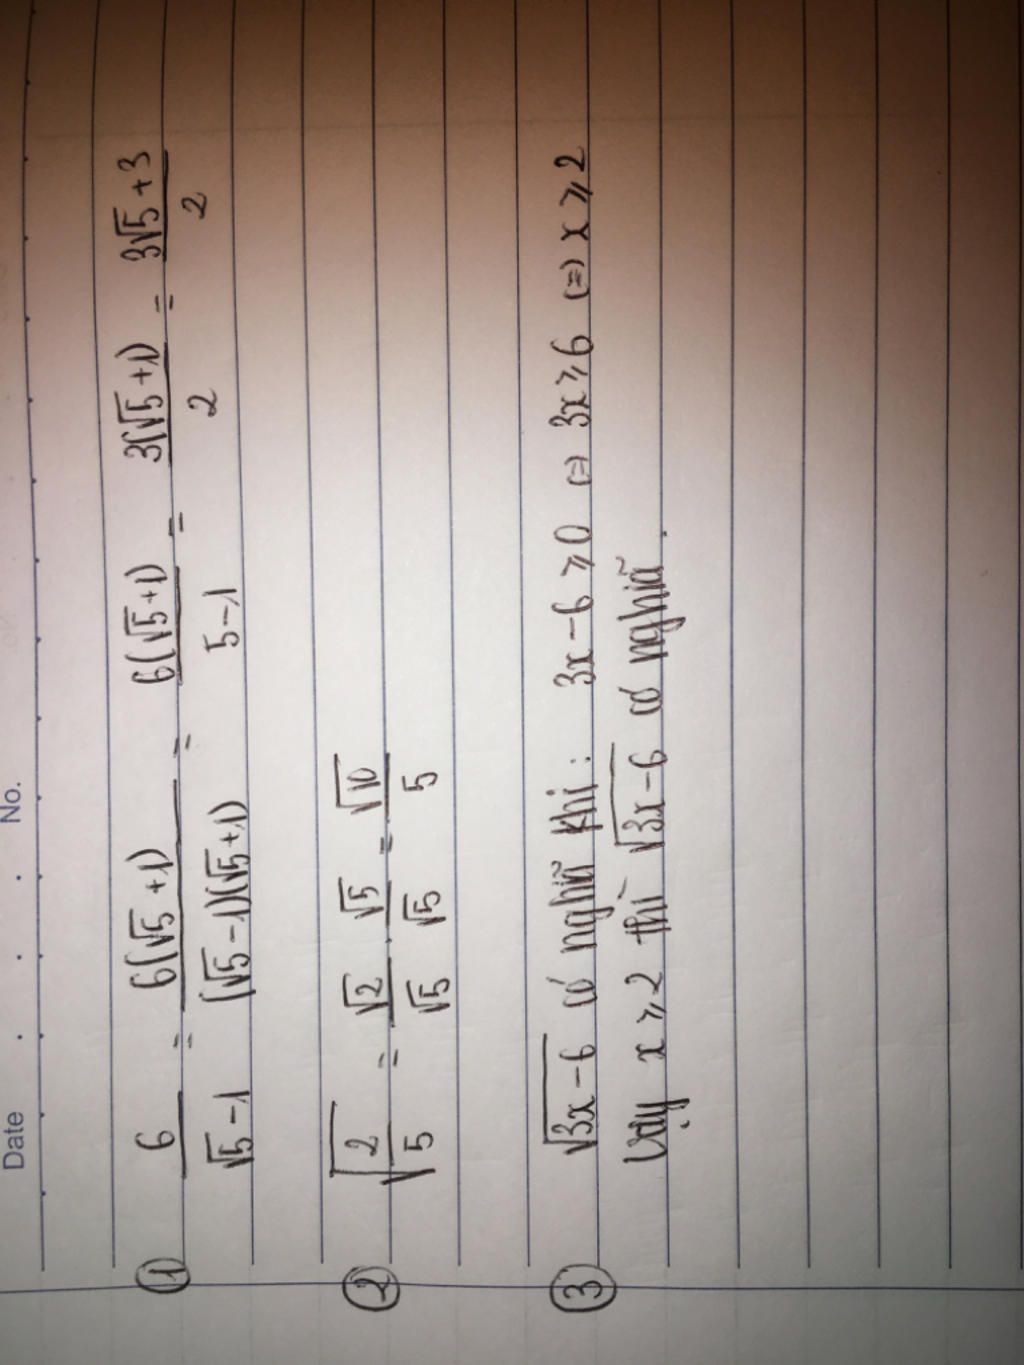 Date . . . No.
① 6/(√5 - 1) = 6(√5 + 1)/((√5 - 1)(√5 + 1)) = 6(√5 + 1)/(5 - 1) = 3(√5 + 1)/2 = (3√5 + 3)/2
② √(2/5) = √2/√5 . √5/√5 = √10/5
③ √(3x - 6) có nghĩa khi: 3x - 6 ⩾ 0 (=) 3x ⩾ 6 (=) x ⩾ 2
Vậy x ⩾ 2 thì √(3x - 6) có nghĩa.